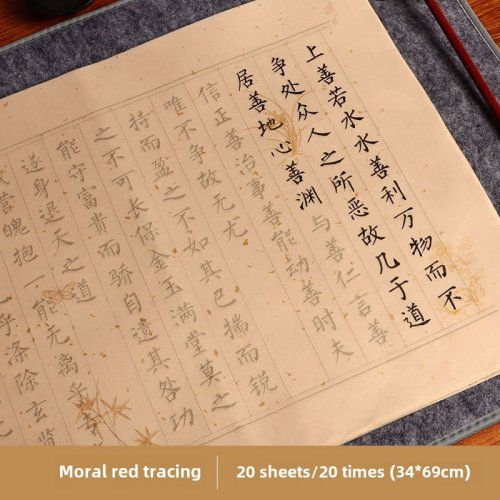 上善若水水善利万物而不
争处众人之所恶故几于道
居善地心善渊与善仁言善
信正善治事善能动善时夫
唯不争故无尤
持而盈之不如其已揣而锐
之不可长保金玉满堂莫之
能守富贵而骄自遗其咎功
遂身退天之道
营魄抱一能无离乎
乎涤除玄
Moral red tracing
20 sheets/20 times (34*69cm)